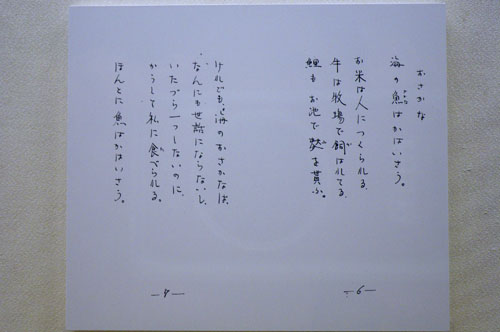 おさかな
海の魚はかはいさう。
お米は人につくられる、
牛は牧場で飼はれてる、
鯉もお池で麩を貰ふ。
けれども海のおさかなは、
なんにも世話にならないし、
いたづら一つしないのに、
かうして私に食べられる。
ほんとに魚はかはいさう。
―6―
―7―